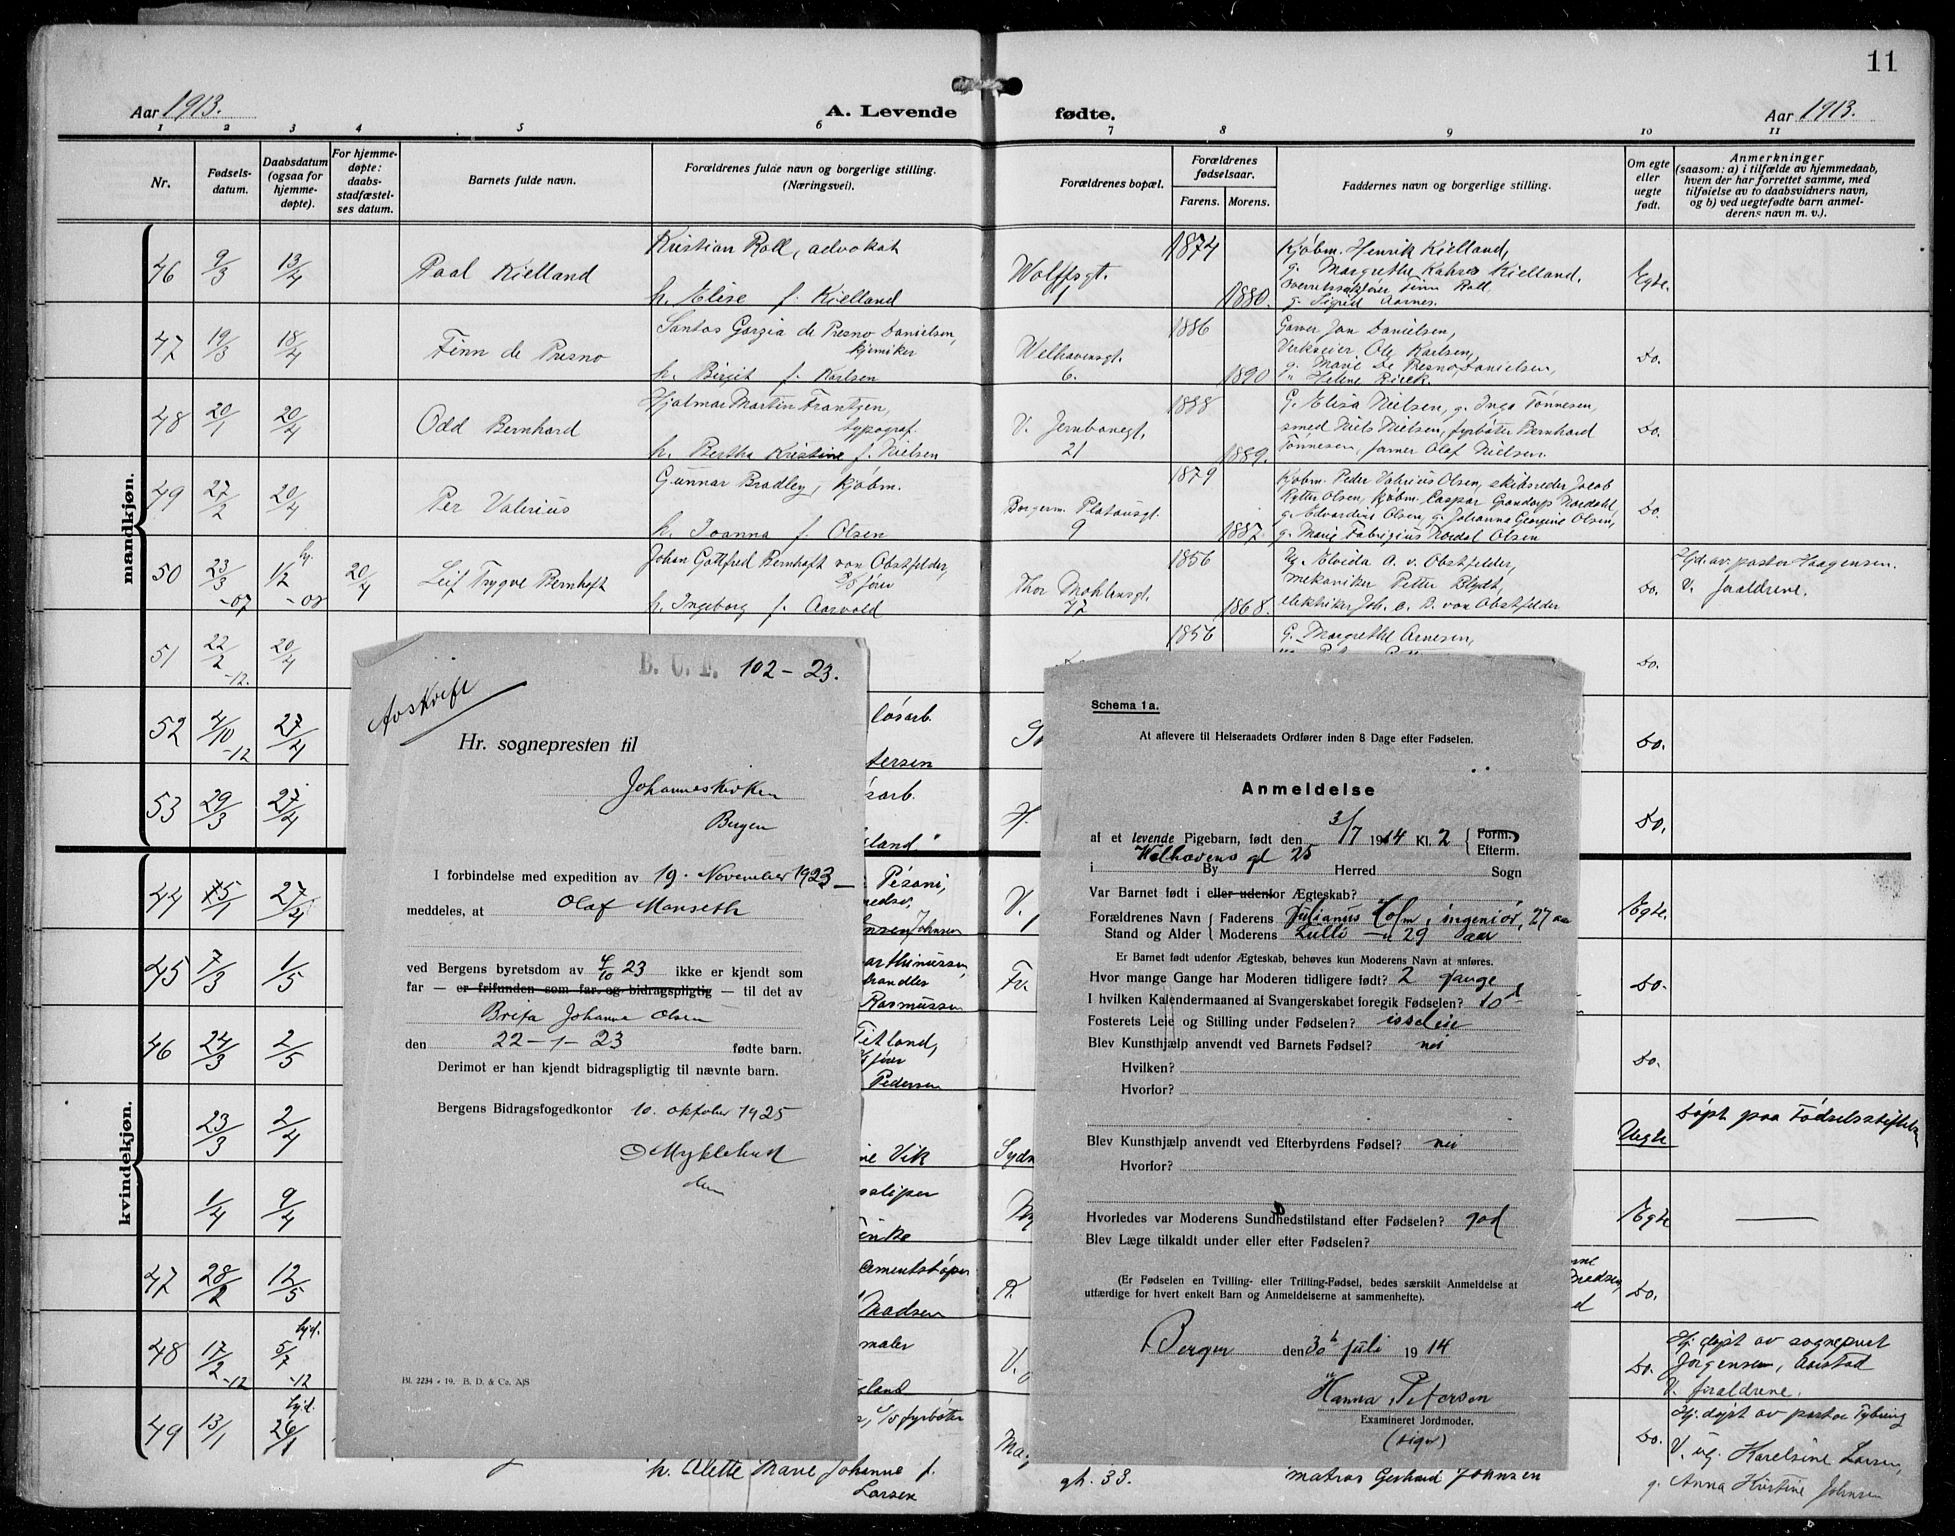 11
Aar 1913.
A. Levende fødte.
Aar 1913.
1 2 3 4 5 6 7 8 9 10 11
Nr.
Fødsels-
datum.
Daabsdatum
(ogsaa for
hjemme-
døpte).
For hjemme-
døpte:
daabs-
stadfæstel-
ses datum.
Barnets fulde navn.
Forældrenes fulde navn og borgerlige stilling.
(Næringsvei).
Forældrenes bopæl.
Forældrenes
fødselsaar.
Farens. Morens.
Faddernes navn og borgerlige stilling.
Om egte
eller
uegte
født.
Anmerkninger
(saasom: a) i tilfælde av hjemmedaab,
hvem der har forrettet samme, med
tilføielse av to daabsvidners navn,
og b) ved uegtefødte barn anmel-
derens navn m. v.).
mandkjøn.
46 9/3 13/4 Paal Kielland
Kristian Roll, advokat
h. Elise f. Kielland
Wolffsgt.
1
1874
1880.
Kjøbm. Henrik Kielland,
g. Margrethe Kahrs Kielland,
Overretssakfører Finn Roll
g. Sigrid Aarnes.
Egte.
47 19/3 18/4 Finn de Presno
Santos Gargia de Presno Danielsen,
kjemiker
h. Birgit f. Karlsen
Welhavensgt.
6.
1886
1890
Garver Jan Danielsen,
Verkseier Ole Karlsen,
g. Marie De Presno Danielsen,
" Helene Rieck.
Do.
48 20/1 20/4 Odd Bernhard
Hjalmar Martin Frantzen,
typograf.
h. Bertha Kristine f. Nielsen
V. Jernbanegt.
21
1888
1889.
G. Elisa Nielsen, g. Inga Tønnesen,
smed Niels Nielsen, fyrbøter Bernhard
Tønnesen, former Olaf Nielsen.
Do.
49 27/2 20/4 Per Valerius
Gunnar Bradley, kjøbm.
h. Joanna f. Olsen
Borgerm. Platousgt.
9
1879
1887.
Kjøbm. Peder Valerius Olsen, skibsreder Jacob
Kjøbm. Caspar
g. Edvardine Olsen, g. Johanna Georgine Olsen,
g. Marie Fabrigius Nordal Olsen
Do.
50 23/3 -07 hj. 1/2 -08 20/4 Leif Trygve Bernhoft
Johan Gottfred Bernhoft von Obstfelder,
h. Ingeborg f. Aasvold
Thor Møhlensgt.
47
1856
1868.
Ug. Alvida A. v. Obstfelder,
mekaniker Petter Blydt,
elektriker Joh. C. B. von Obstfelder
Do.
Hjd. av pastor Haagensen.
V. Foraldrene.
51 22/2 -12. 20/4
1856
G. Margrethe Arnesen,
Do.
52 4/10 -12 27/4
løsarb.
tersen
Do.
53 29/3 27/4
sarb.
land."
H.
Do.
kvindekjøn.
44 15/1 27/4
Pesani,
Johnsen
V.
Egte.
45 7/3 1/5
handler
Rasmussen
Do.
46 24/3 2/5
Titland,
Pedersen
Do.
23/3 2/4
ne Vik
Sydn
Uegte
Døpt paa Fødselsstiftelse
1/4 9/4
Egte
47 28/2 12/5
cementstøper
Madsen
Do.
48 17/2 -12 hjd. 5/7 -12
maler
land
V.
Do.
Hj. døpt av sogneprest
Jørgensen, Aarstad
V. foraldrene.
49 13/1 hjd. 26/1
fyrbøter
Do.
Hj. døpt av pastor Tybring
V. ug. Karelsine Larsen,
g. Anna Kirstine Johnsen
h. Alette Marie Johanne f.
Larsen
gt. 33.
matros Gerhard Johnsen
B. U. F. 102-23.
Avskrift
Hr. sognepresten til
Johanneskirken
Bergen
I forbindelse med expedition av 19. November 1923
meddeles, at Olaf Monseth
ved Bergens byretsdom av 4/10 23 ikke er kjendt som
far — er frifunden som far og bidragspligtig — til det av
Brita Johanne Olsen
den 22-1-23 fødte barn.
Derimot er han kjendt bidragspligtig til nævnte barn.
Bergens Bidragsfogedkontor 10. oktober 1925
Myklebust
Bl. 2234 - 19. B. D. & Co. A/S
Schema 1a.
At aflevere til Helseraadets Ordfører inden 8 Dage efter Fødselen.
Anmeldelse
af et levende Pigebarn, født den 3/7 1914 Kl. 2 { Form.
Efterm.
Welhavens gt 25
i By Herred Sogn
Var Barnet født i eller udenfor Ægteskab?
Forældrenes Navn { Faderens Julianus Holm, ingeniør, 27 aar
Stand og Alder { Moderens Lulli 29 aar
Er Barnet født udenfor Ægteskab, behøves kun Moderens Navn at anføres.
Hvor mange Gange har Moderen tidligere født? 2 gange
I hvilken Kalendermaaned af Svangerskabet foregik Fødselen? 10d
Fosterets Leie og Stilling under Fødselen? isseleie
Blev Kunsthjælp anvendt ved Barnets Fødsel? nei
Hvilken?
Hvorfor?
Blev Kunsthjælp anvendt ved Efterbyrdens Fødsel? nei
Hvorfor?
Hvorledes var Moderens Sundhedstilstand efter Fødselen? god
Blev Læge tilkaldt under eller efter Fødselen?
(Er Fødselen en Tvilling- eller Trilling-Fødsel, bedes særskilt Anmeldelse at
utfærdige for hvert enkelt Barn og Anmeldelserne at sammenhefte).
Bergen den 30t juli 1914
Hanna Petersen
Examineret Jordmoder.
(sign)